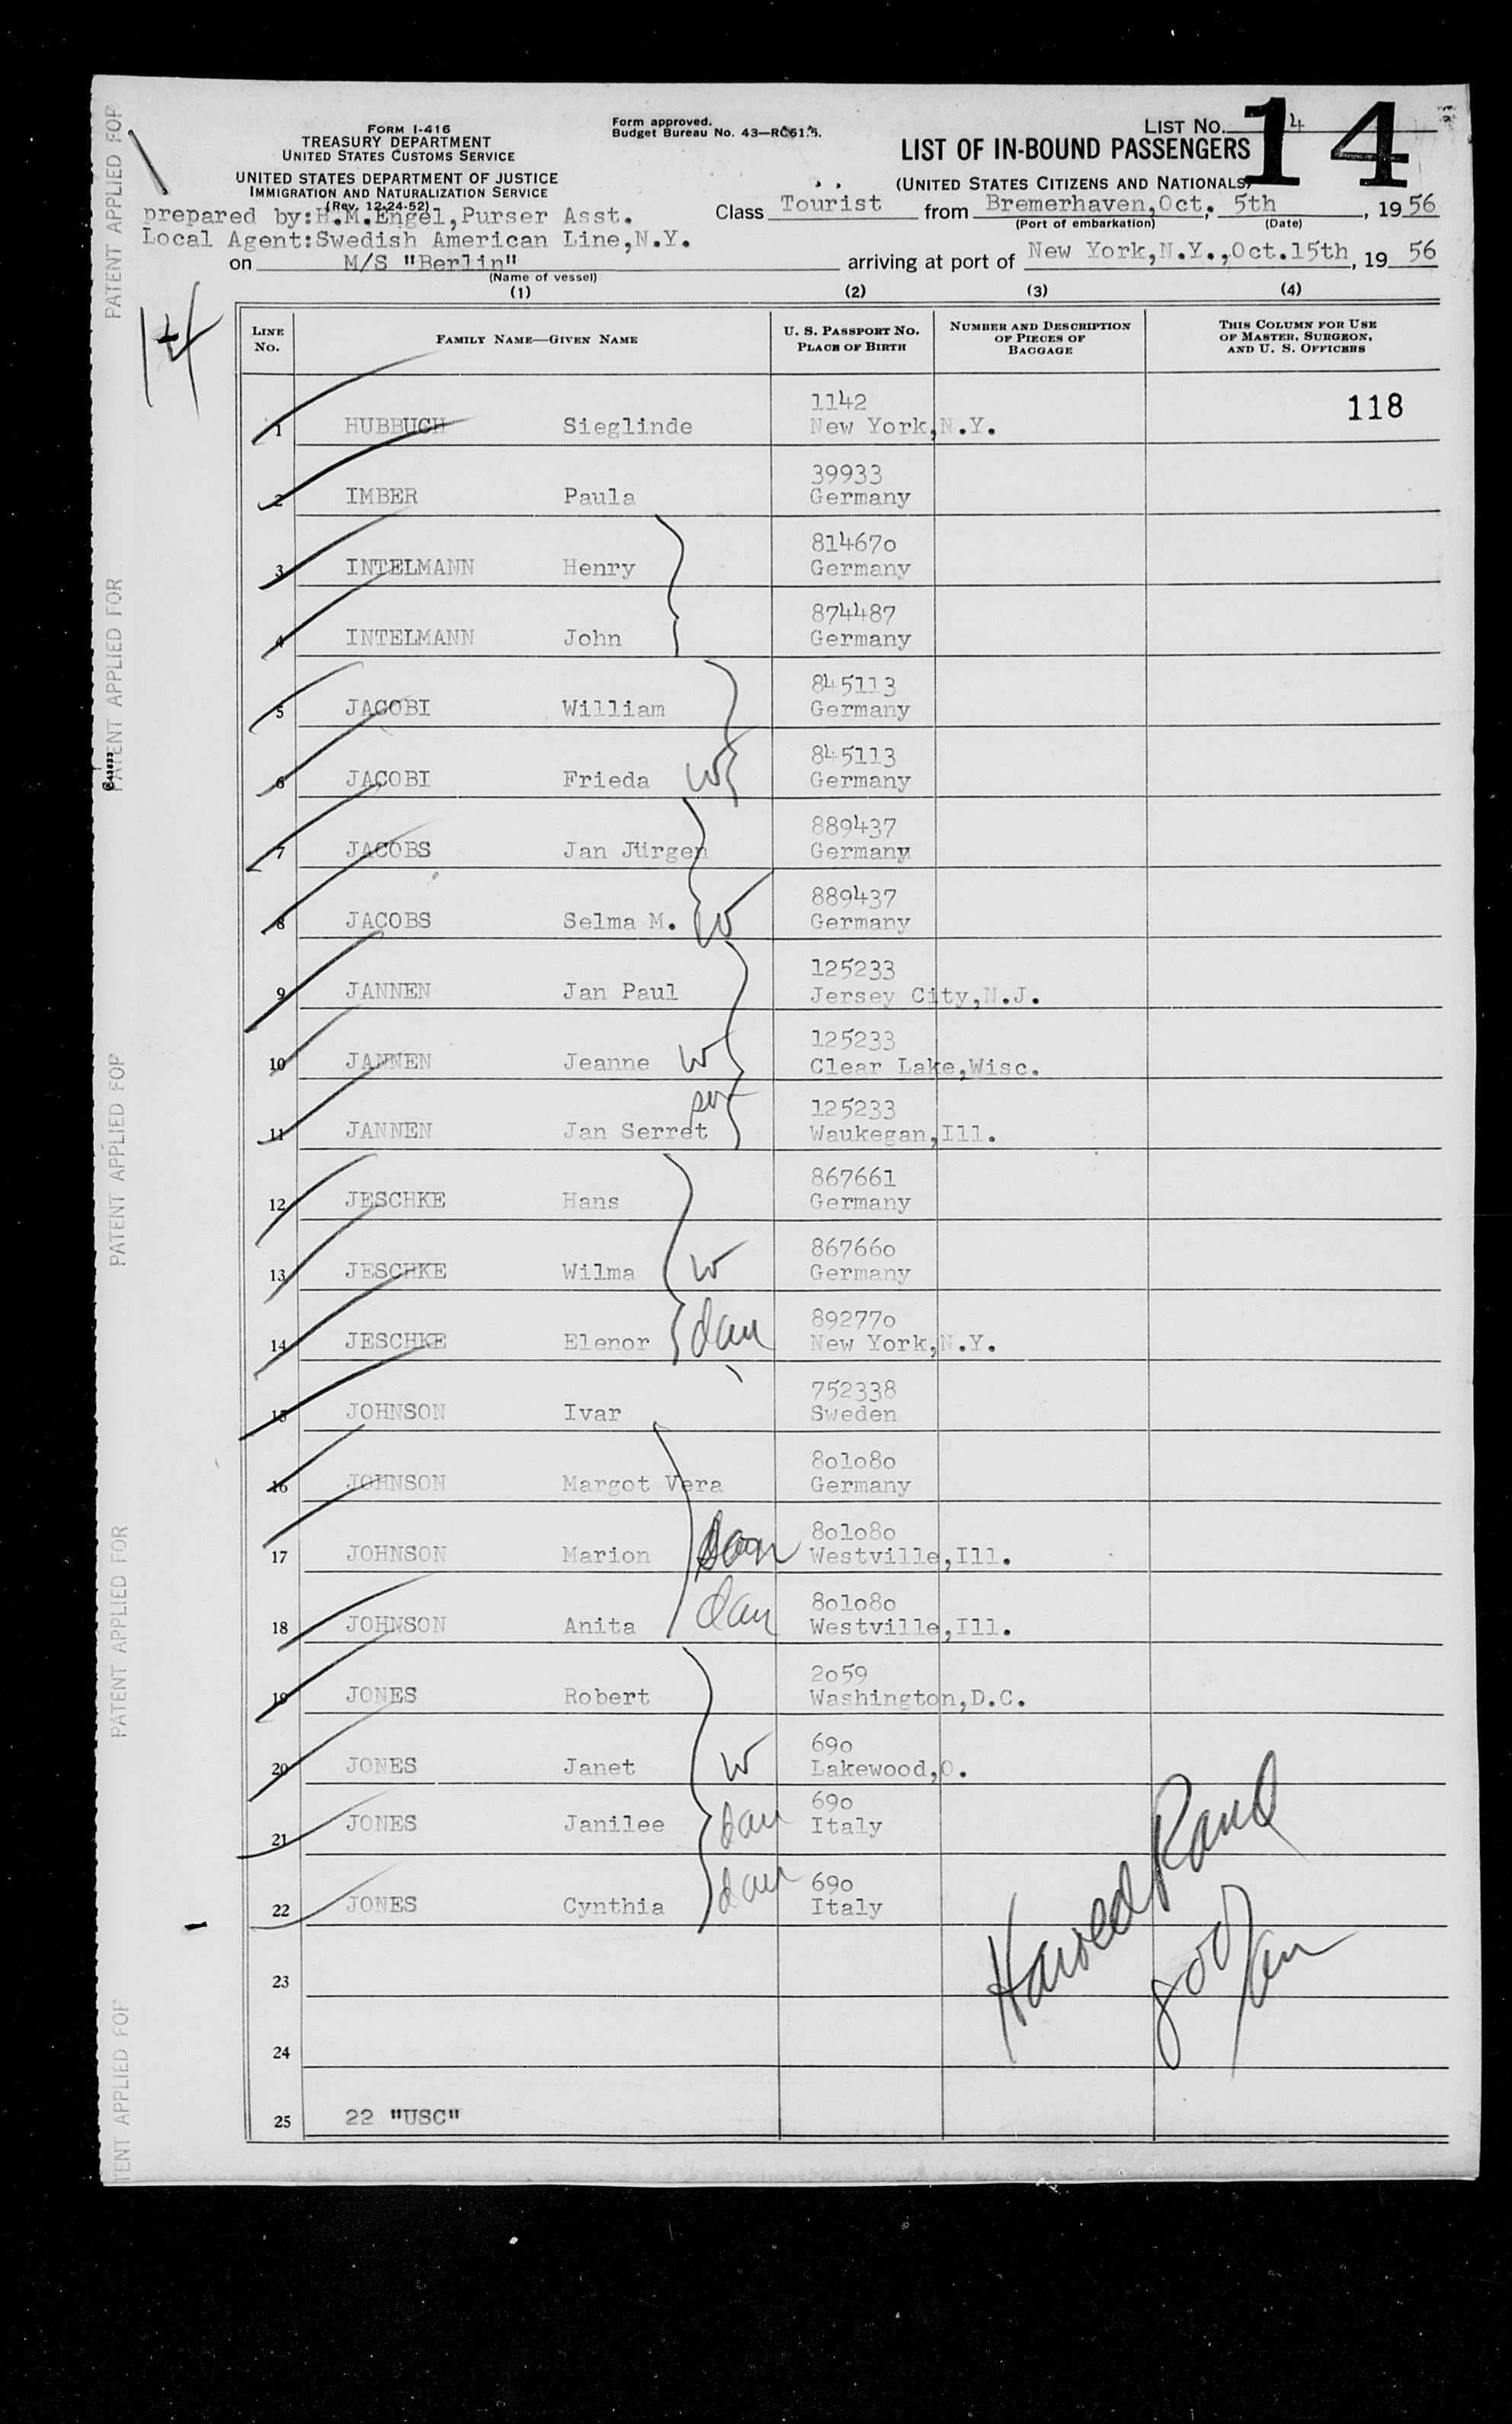 FORM I-416
TREASURY DEPARTMENT
UNITED STATES CUSTOMS SERVICE
UNITED STATES DEPARTMENT OF JUSTICE
IMMIGRATION AND NATURALIZATION SERVICE
(Rev. 12-24-52)
Form approved.
Budget Bureau No.
LIST NO. 4
14
LIST OF IN-BOUND PASSENGERS
(UNITED STATES CITIZENS AND NATIONALS)
prepared by:H.M.Engel,Purser Asst.
Local Agent:Swedish American Line,N.Y.
Class Tourist from Bremerhaven,Oct. 5th, 1956
(Port of embarkation) (Date)
on M/S "Berlin" arriving at port of New York,N.Y.,Oct.15th, 19 56
(Name of vessel)
14
(1) (2) (3) (4)
LINE NO. FAMILY NAME—GIVEN NAME U. S. PASSPORT NO. PLACE OF BIRTH NUMBER AND DESCRIPTION OF PIECES OF BAGGAGE THIS COLUMN FOR USE OF MASTER, SURGEON, AND U. S. OFFICERS
118
1142
1 HUBBUCH Sieglinde New York,N.Y.
39933
2 IMBER Paula Germany
814670
3 INTELMANN Henry Germany
874487
4 INTELMANN John Germany
845113
5 JACOBI William Germany
845113
6 JACOBI Frieda W Germany
889437
7 JACOBS Jan Jürgen Germany
889437
8 JACOBS Selma M. W Germany
125233
9 JANNEN Jan Paul Jersey City,N.J.
125233
10 JANNEN Jeanne W Clear Lake,Wisc.
125233
11 JANNEN Jan Serret Waukegan,Ill.
867661
12 JESCHKE Hans Germany
867660
13 JESCHKE Wilma W Germany
892770
14 JESCHKE Elenor dau New York,N.Y.
752338
15 JOHNSON Ivar Sweden
801080
16 JOHNSON Margot Vera Germany
801080
17 JOHNSON Marion Westville,Ill.
801080
18 JOHNSON Anita dau Westville,Ill.
2059
19 JONES Robert Washington,D.C.
690
20 JONES Janet W Lakewood,O.
690
21 JONES Janilee dau Italy
690
22 JONES Cynthia dau Italy
23
24
25 22 "USC"
Harold Rand
PATENT APPLIED FOR
PATENT APPLIED FOR
PATENT APPLIED FOR
PATENT APPLIED FOR
TENT APPLIED FOR